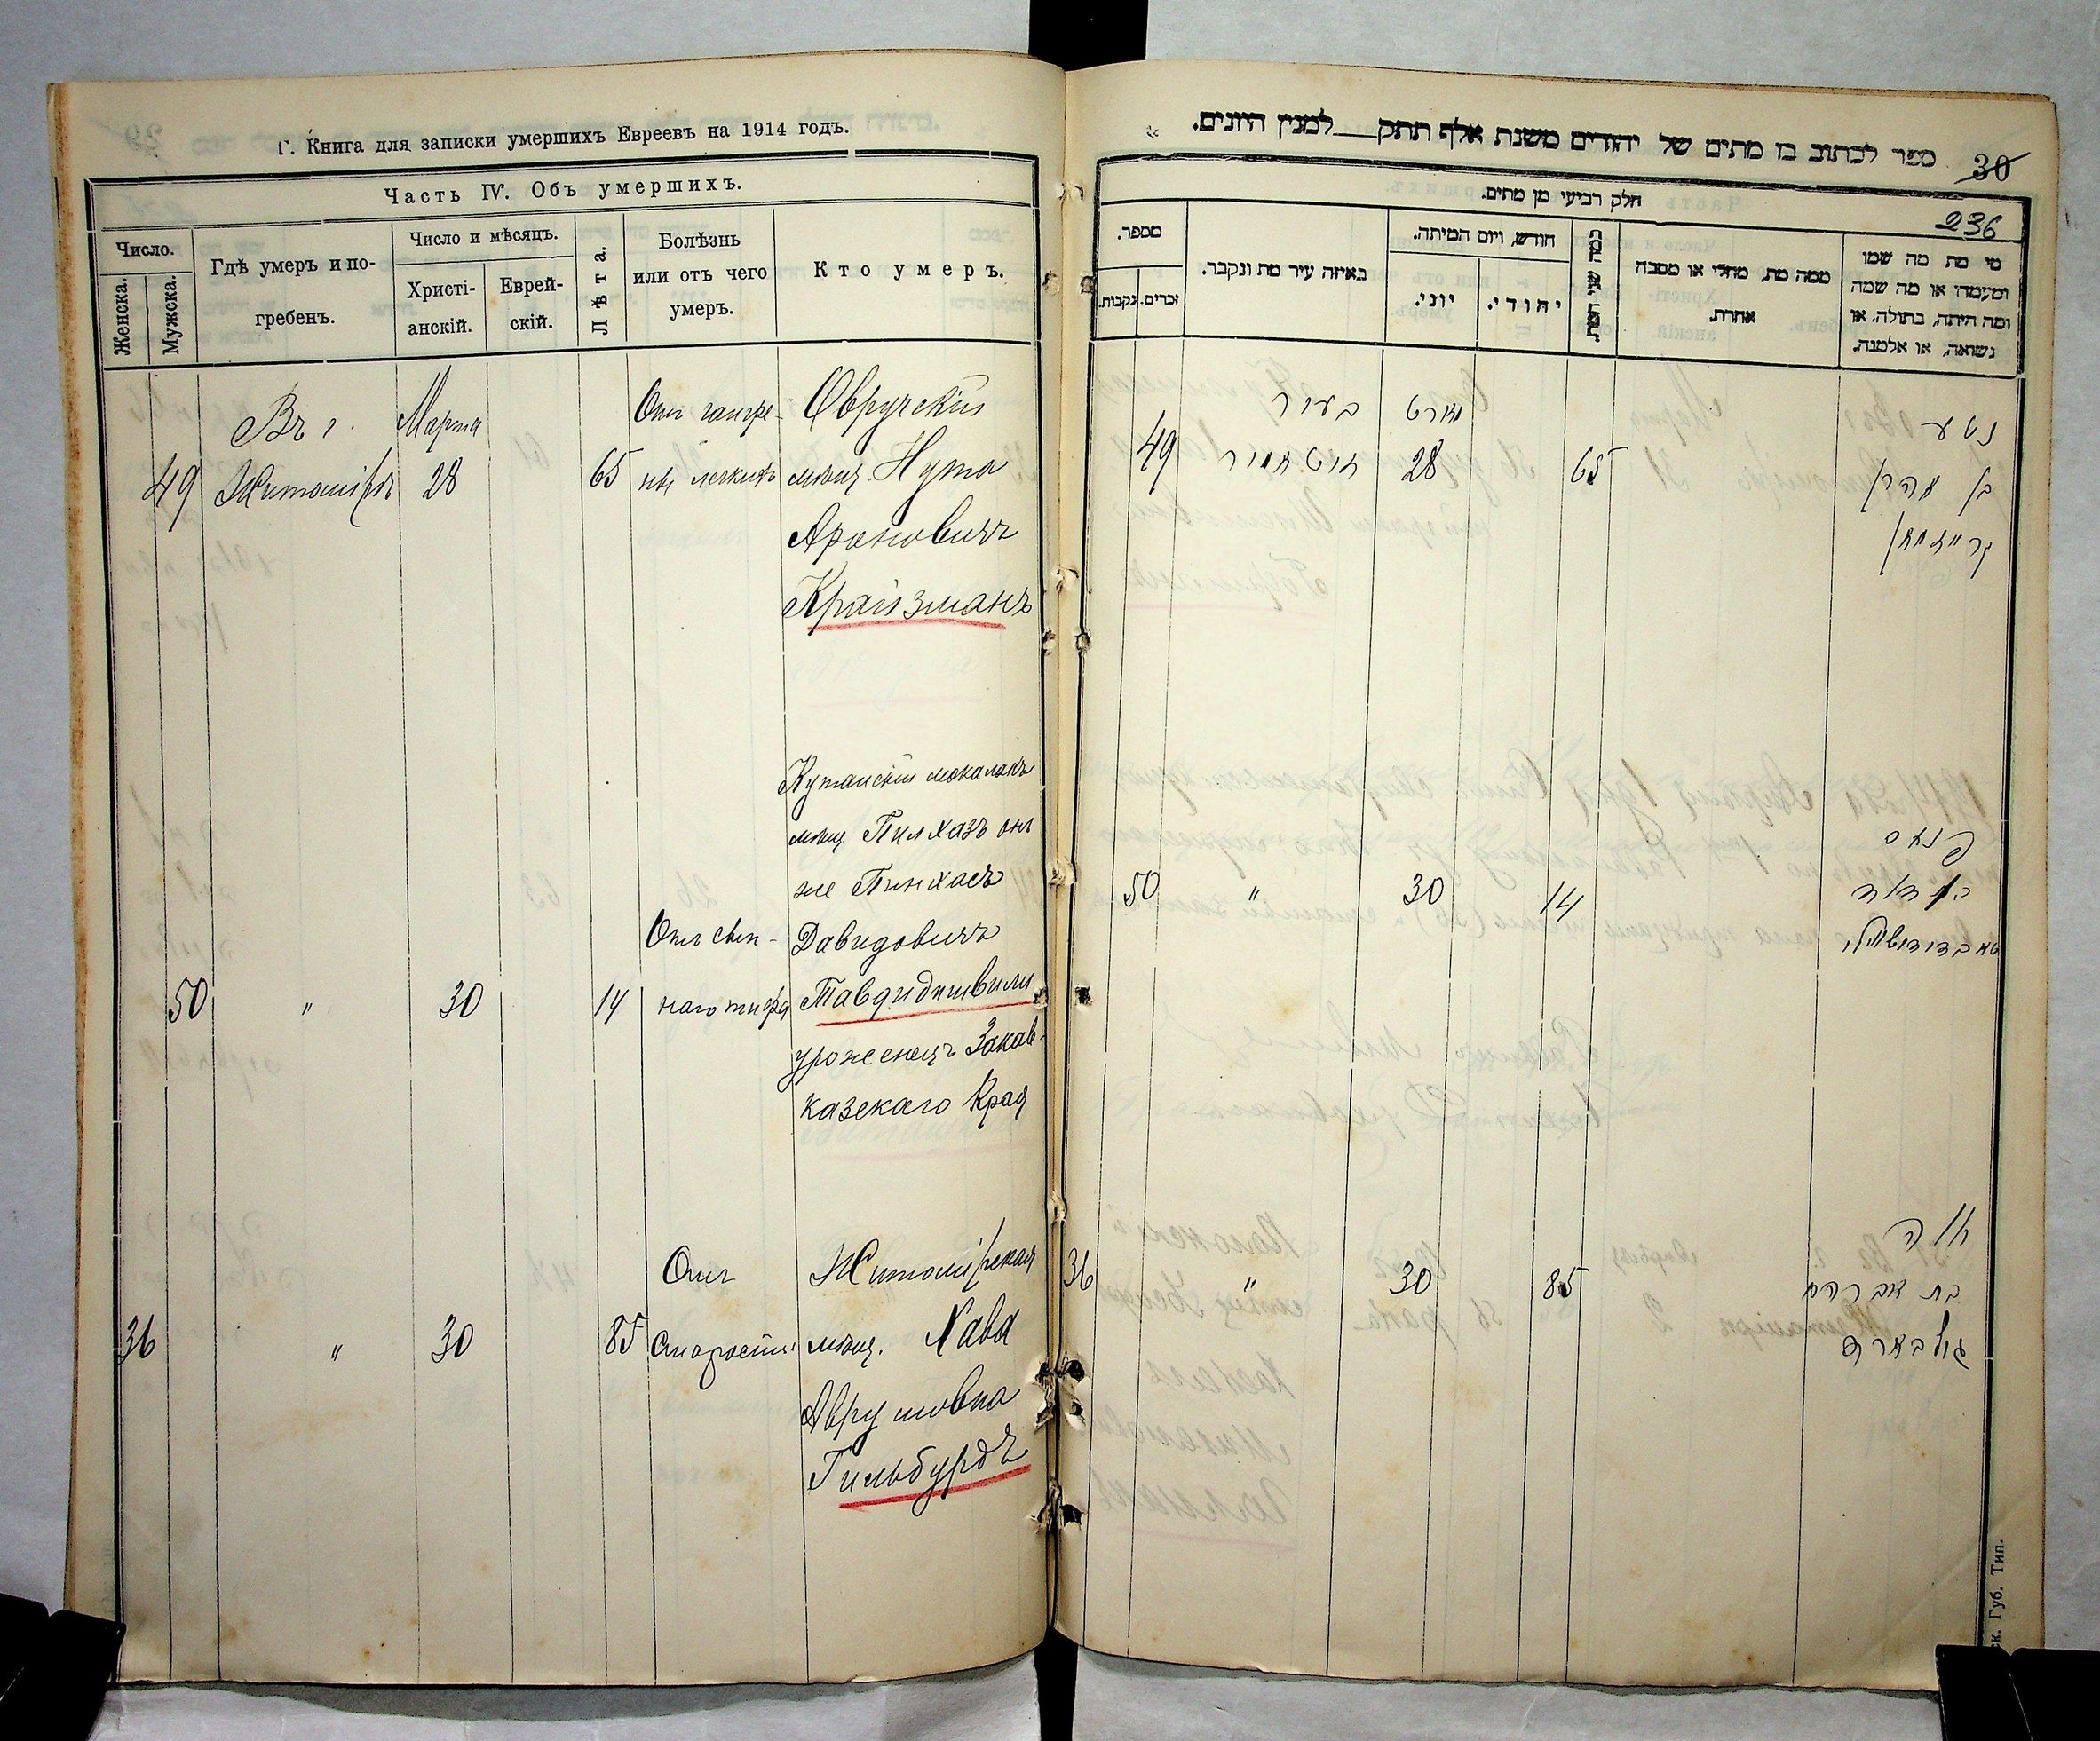 Г. Книга для записки умершихъ Евреевъ на 1914 годъ.
Часть IV. Объ умершихъ.
Число.
Женска.
Мужска.
Гдѣ умеръ и по-
гребенъ.
Число и мѣсяцъ.
Христі-
анскій.
Еврей-
скій.
Лѣта.
Болѣзнь
или отъ чего
умеръ.
Кто умеръ.
49
Въ г.
Житомірѣ
Марта
28
65
Отъ гангре-
ны легкихъ
Овручскій
мѣщ. Нута
Ароновичъ
Крайзманъ
50
"
30
14
Отъ сып-
наго тифа
Кутаискій
мѣщ Пилхазъ онъ
же Пинхасъ
Давидовичъ
Тавдидишвили
уроженецъ Закав-
казскаго Края
36
"
30
85
Отъ
старости
Житомірская
мѣщ. Хава
Аврумовна
Гильбурдъ
ספר לכתוב בו מתים של יהודים משנת אלף תתק למנין היונים.
30
236
חלק רביעי מן מתים.
מספר.
נקבות.
זכרים.
באיזה עיר מת ונקבר.
חודש, ויום המיתה.
יוני.
יהודי.
כמה שני המת
ממה מת, מחלי או מסבה
אחרת.
מי מת מה שמו
ומעמדו או מה שמה
ומה היתה, בתולה, או
נשואה, או אלמנה.
49
בעיר
מארט
28
65
נטע
בן אהרן
קרייזמאן
50
"
30
14
פנחס
בן דוד
טאבדידישווילי
36
"
30
85
חוה
בת אברהם
ск. Губ. Тип.